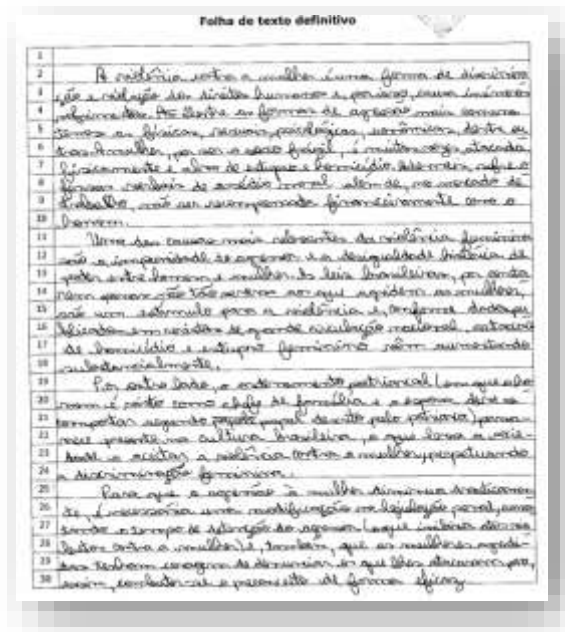 Folha de texto definitivo
1
2 A violência contra a mulher é uma forma de discrimina
3 ção e violação dos direitos humanos e, por isso, causa inúmeros
4 sofrimentos. Dentre as formas de agressão mais comuns
5 temos as físicas, sexuais, psicológicas, econômicas, dentre ou
6 tras. A mulher, por ser o sexo frágil, é muitas vezes atacada
7 fisicamente e alvo de estupro e homicídio. sofre o
8 verbais de assédio moral além de, no mercado de
9 trabalho, não ser recompensada financeiramente como o
10 homem.
11 Uma das causas mais relevantes da violência feminina
12 são a impunidade do agressor e a desigualdade histórica de
13 poder entre homens e mulheres. As leis brasileiras, por ainda
14 nem não tão severas ao que agridem as mulheres,
15 são um estímulo para a violência e, conforme dados pu
16 blicados em revistas de grande circulação nacional, os
17 de homicídio e estupro feminino vêm aumentando
18 substancialmente.
19 Por outro lado, o patriarcal (em que o ho
20 mem é visto como chefe de família e a esposa deve se
21 comportar segundo papel descrito pelo patriarca) perma
22 nece presente na cultura brasileira, o que leva a socie-
23 dade a aceitar a violência contra a mulher, perpetuando
24 a discriminação feminina.
25 Para que a agressão à mulher diminua drasticamen
26 te, é necessária uma modificação na legislação penal, aumen
27 tando o tempo de detenção do agressor (o que
28 contra a mulher) e, também, que as mulheres agredi
29 das tenham coragem de denunciar os que lhes atacaram para,
30 assim, combater-se o preconceito de forma eficaz